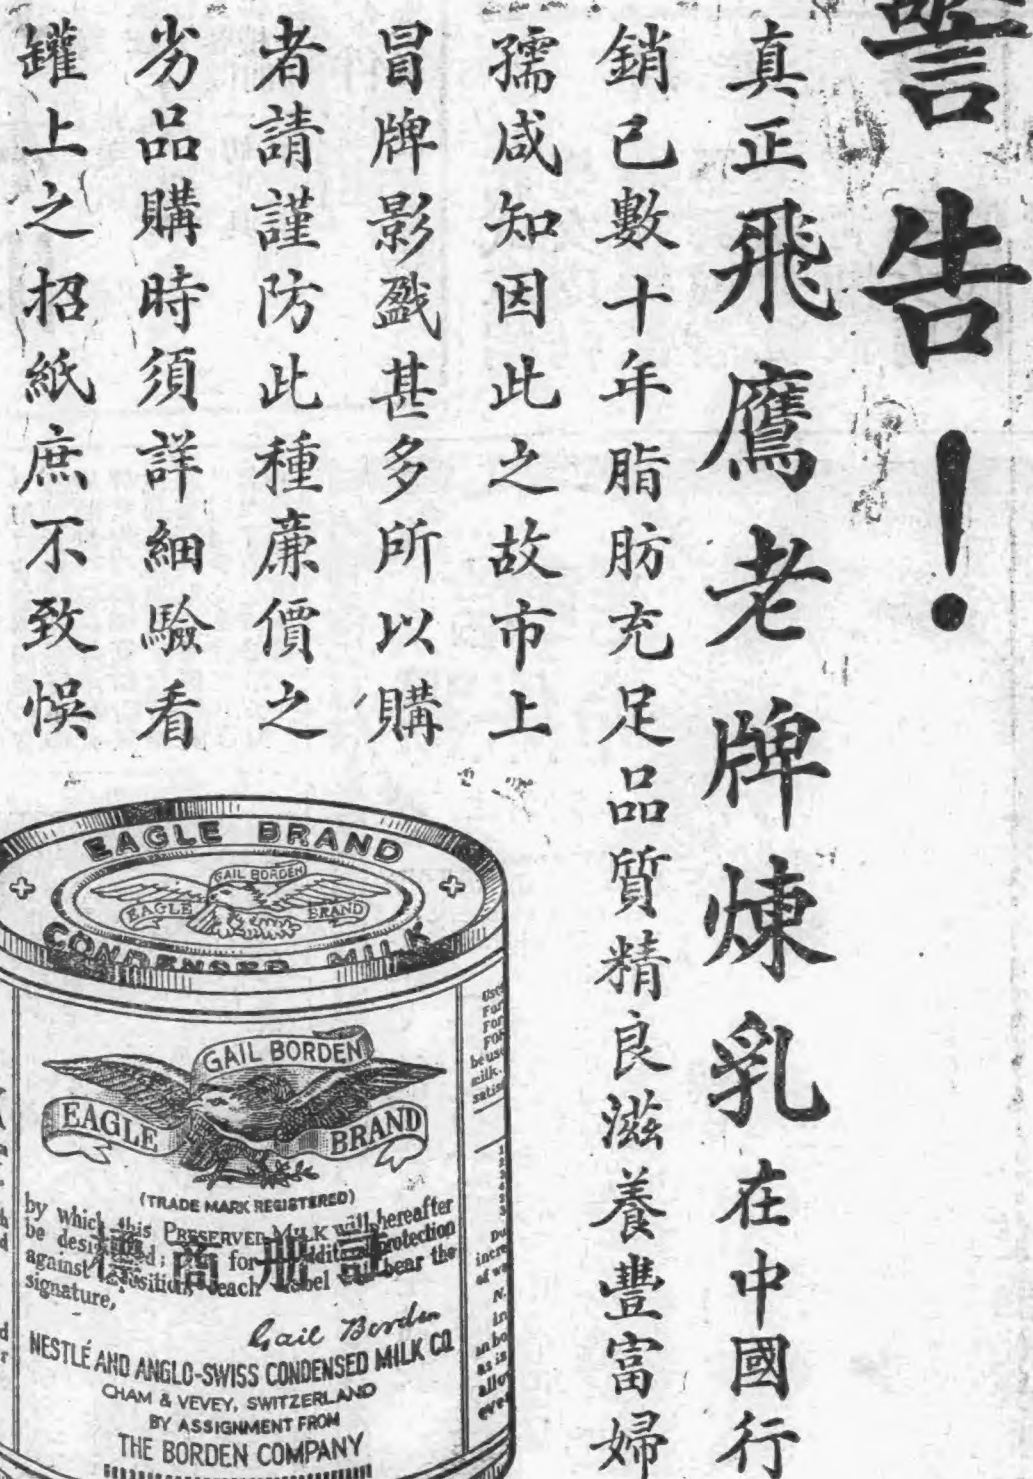 警告！
真正飛鷹老牌煉乳在中國行
銷已數十年脂肪充足品質精良滋養豐富婦
孺咸知因此之故市上
冒牌影戤甚多所以購
者請謹防此種廉價之
劣品購時須詳細驗看
罐上之招紙庶不致悞
EAGLE BRAND
GAIL BORDEN
EAGLE BRAND
CONDENSED MILK
GAIL BORDEN
EAGLE BRAND
(TRADE MARK REGISTERED)
by which this PRESERVED MILK will hereafter
be for protection
against each label bear the
signature,
商 註
Gail Borden
NESTLÉ AND ANGLO-SWISS CONDENSED MILK CO.
CHAM & VEVEY, SWITZERLAND
BY ASSIGNMENT FROM
THE BORDEN COMPANY